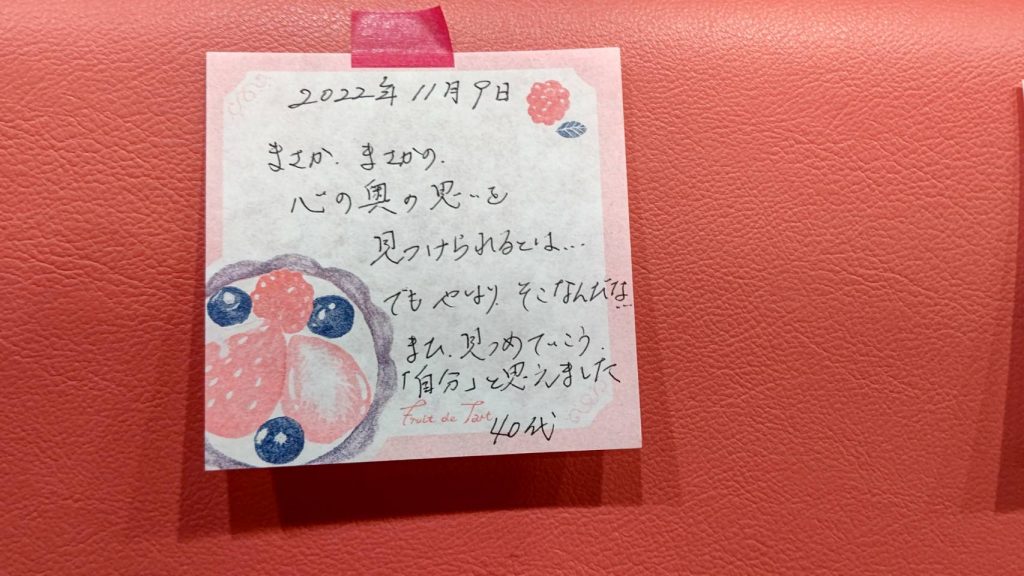 2022年11月9日
まさか、まさかの、
心の奥の思いを
見つけられるとは…
でも やはり そこなんだな…
まず、見つめていこう、
「自分」と思えました
Fruit de Tart
40代